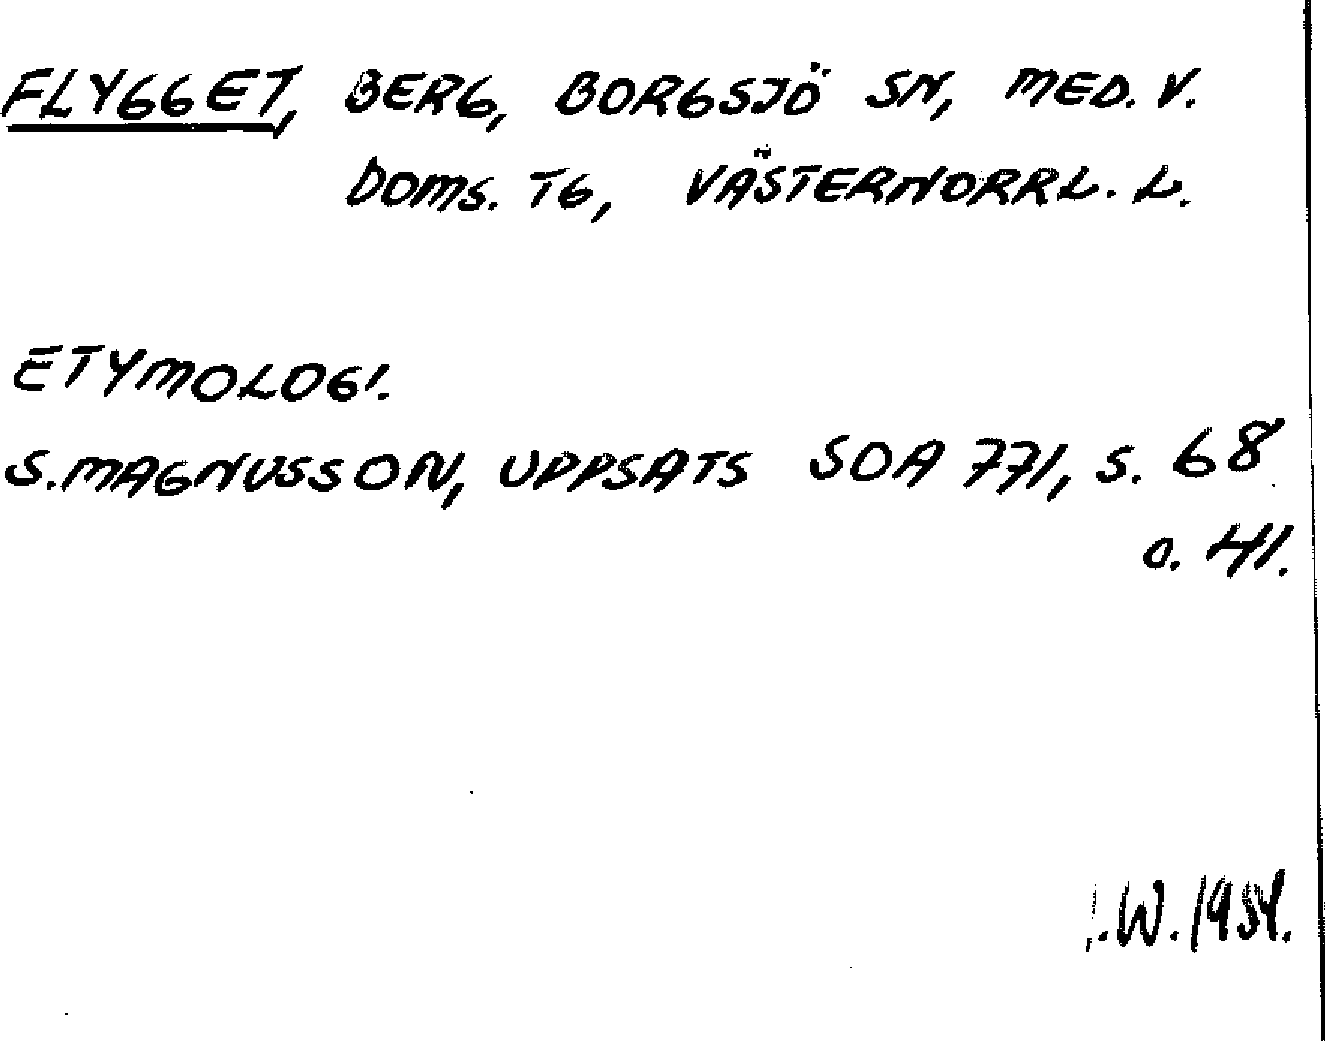 FLYGGET, BERG, BORGSJÖ SN, MED. V.
DOMS. TG, VÄSTERNORRL. L.
ETYMOLOGI.
S. MAGNUSSON, UPPSATS SOA 771, S. 68
o. 41.
I.W. 1954.